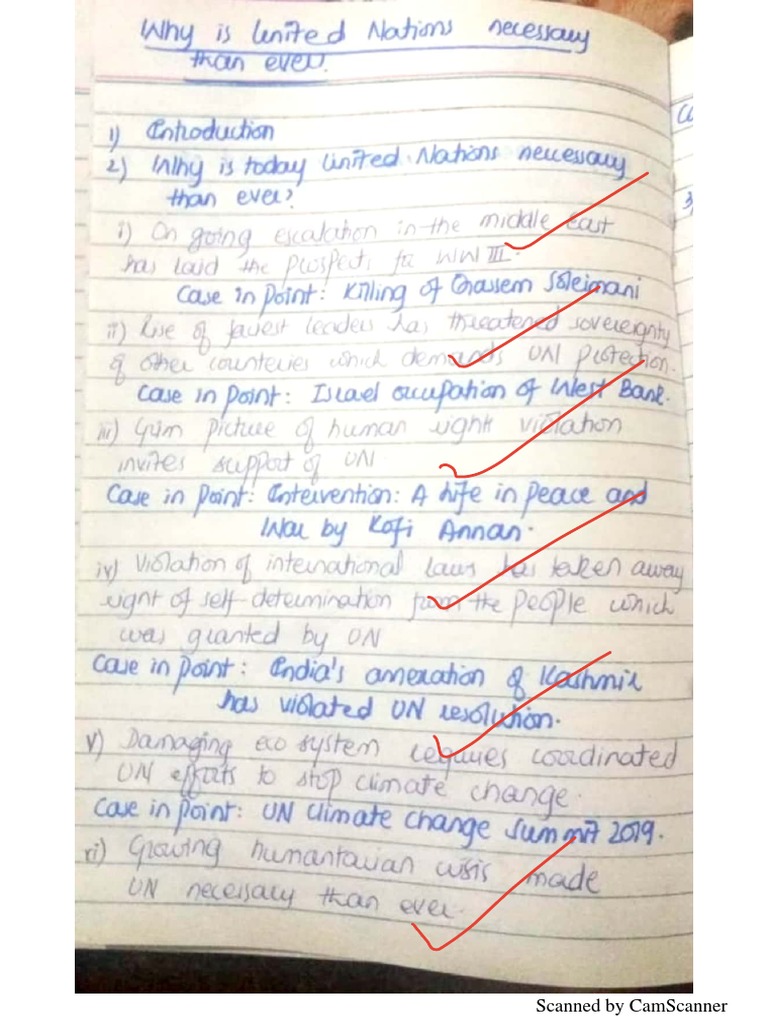 Why is United Nations necessary
than ever.
1) Introduction
2) Why is today United Nations necessary
than ever?
i) On going escalation in the middle east
has laid the prospects for WW III.
Case in Point: Killing of Qassem Soleimani
ii) Rise of leaders has threatened sovereignty
of other counteries which demands UN protection.
Case in Point: Israel occupation of West Bank.
iii) Grim picture of human right violation
invites support of UN
Case in Point: Intervention: A life in peace and
War by Kofi Annan.
iv) Violation of international laws has taken away
right of self-determination from the people which
was granted by UN
Case in Point: India's annexation of Kashmir
has violated UN resolution.
v) Damaging eco system requires coordinated
UN efforts to stop climate change.
Case in Point: UN Climate change Summit 2019.
vi) Growing humanitarian crisis made
UN necessary than ever.
Scanned by CamScanner